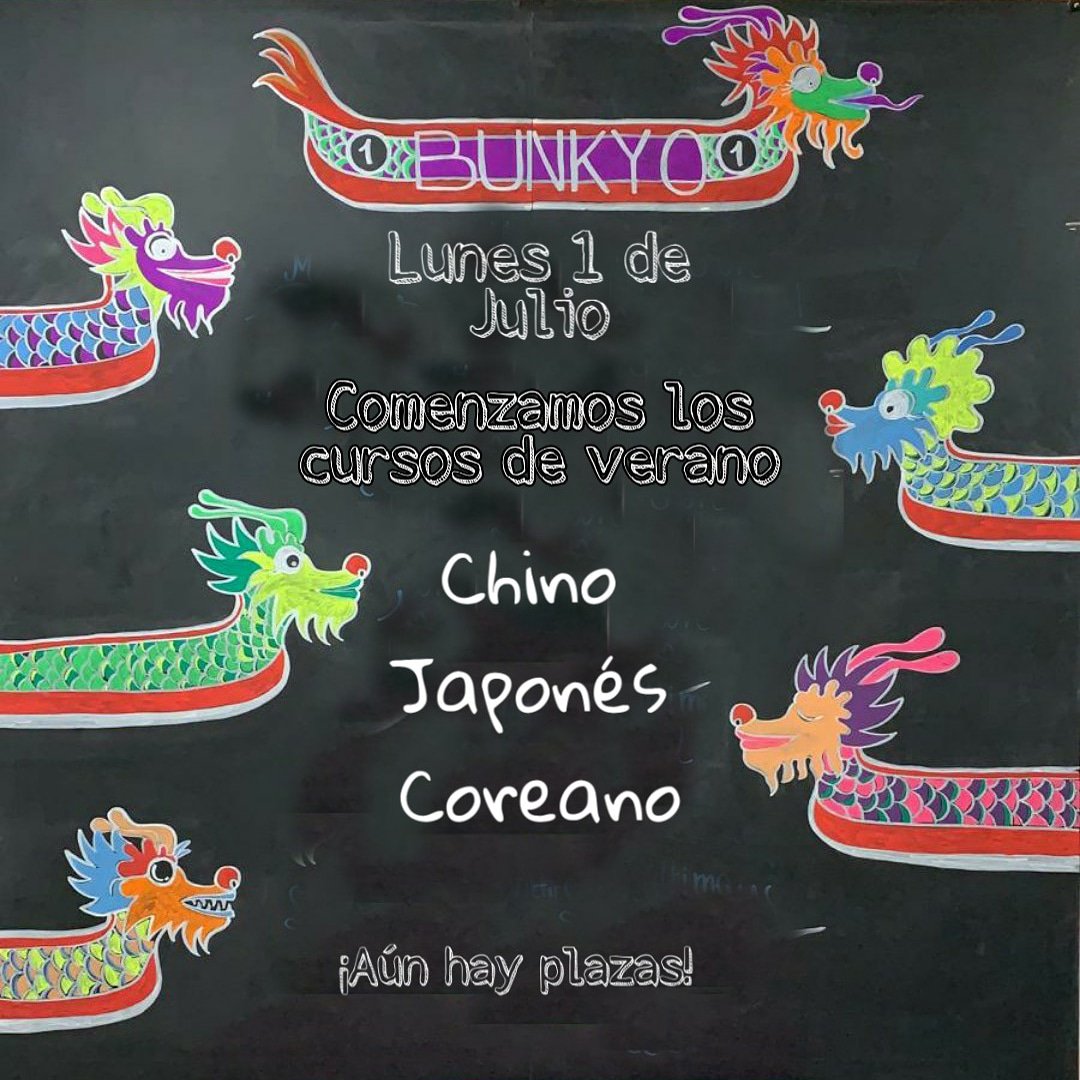 1 BUNKYO 1
Lunes 1 de
Julio
Comenzamos los
cursos de verano
Chino
Japonés
Coreano
¡Aún hay plazas!